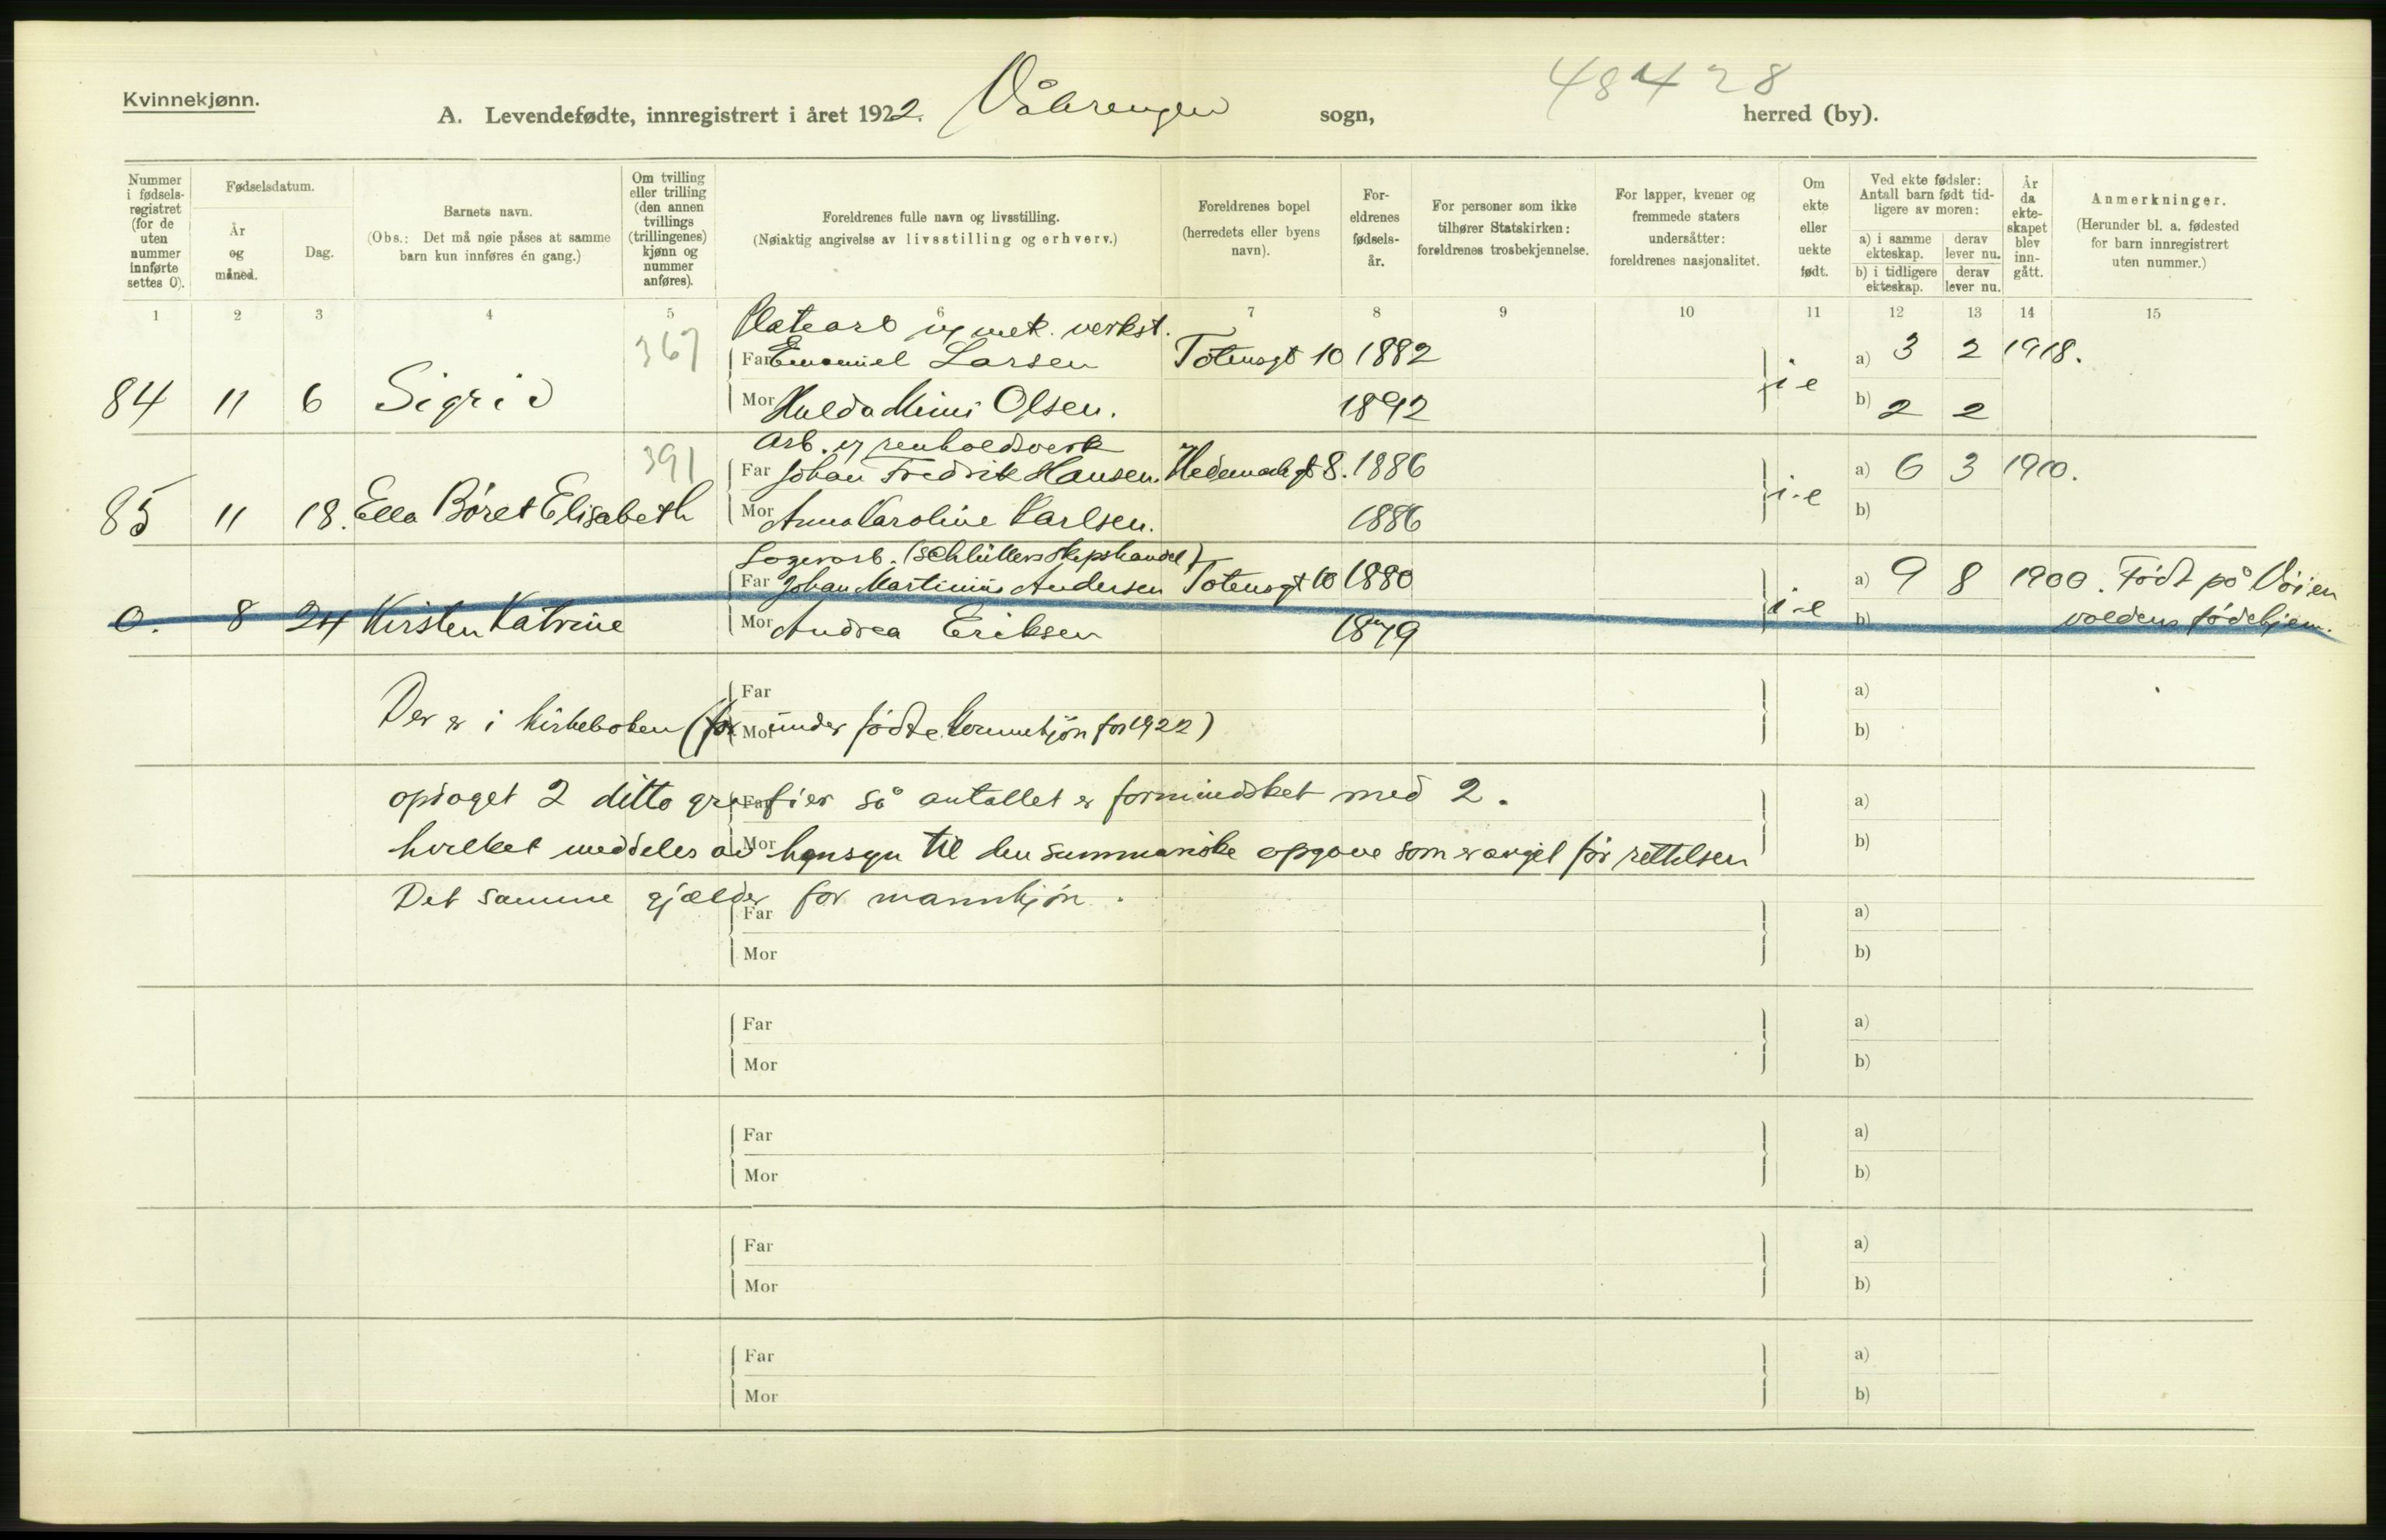 Kvinnekjønn.
48428
A. Levendefødte, innregistrert i året 1922. Vålerengen sogn, herred (by).
Nummer i fødsels-registret (for de uten nummer innførte settes 0).
Fødselsdatum.
År og måned.
Dag.
Barnets navn.
(Obs.: Det må nøie påses at samme barn kun innføres én gang.)
Om tvilling eller trilling (den annen tvillings (trillingenes) kjønn og nummer anføres).
Foreldrenes fulle navn og livsstilling.
(Nøiaktig angivelse av livsstilling og erhverv.)
Foreldrenes bopel (herredets eller byens navn).
For-eldrenes fødsels-år.
For personer som ikke tilhører Statskirken: foreldrenes trosbekjennelse.
For lapper, kvener og fremmede staters undersåtter: foreldrenes nasjonalitet.
Om ekte eller uekte født.
Ved ekte fødsler: Antall barn født tid-ligere av moren:
a) i samme ekteskap. derav lever nu.
b) i tidligere ekteskap. derav lever nu.
År da ekte-skapet blev inn-gått.
Anmerkninger.
(Herunder bl. a. fødested for barn innregistrert uten nummer.)
1 2 3 4 5 6 7 8 9 10 11 12 13 14 15
367 Platearb mek. verkst.
Far Emanuel Larsen Totensgt 10 1882 a) 3 2 1918.
84 11 6 Sigrid Mor Hulda Mimi Olsen. 1892 i-e b) 2 2
391 Arb. renholdsverk
Far Johan Fredrik Hansen. Hedemarksgt 8. 1886 a) 6 3 1910.
85 11 18. Ella Boret Elisabeth Mor Anna Karoline Karlsen. 1886 i-e b)
Lagerarb. (Schlüters skipshandel)
Far Johan Martinius Andersen Totensgt 10 1880 a) 9 8 1900. Født på Vøien
0. 8 24 Kirsten Katrine Mor Andrea Eriksen 1879 i-e b) voldens fødehjem.
Far a)
Der er i kirkeboken (for Mor under fødte kvinnekjøn for 1922) b)
opdaget 2 ditto Far så antallet er formindsket med 2. a)
hvilket meddeles av Mor hensyn til den summariske opgave som er avgit før rettelsen b)
Det samme gjælder for mannkjøn.
Far a)
Mor b)
Far a)
Mor b)
Far a)
Mor b)
Far a)
Mor b)
Far a)
Mor b)